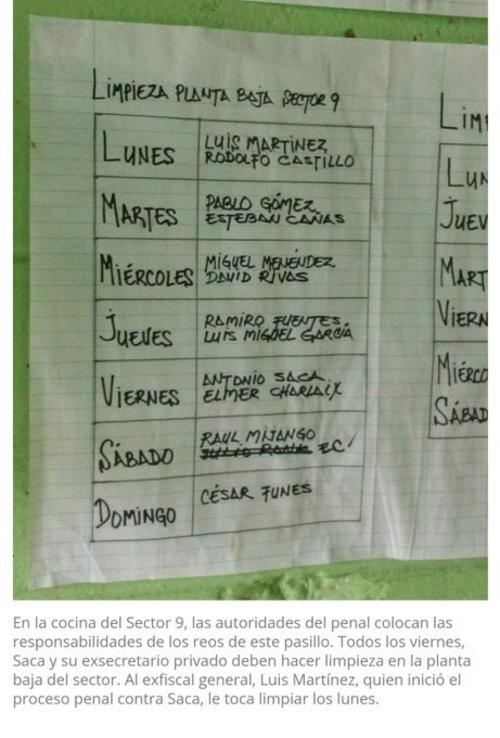 LIMPIEZA PLANTA BAJA SECTOR 9
LUNES
LUIS MARTINEZ
RODOLFO CASTILLO
MARTES
PABLO GÓMEZ
ESTEBAN CAÑAS
MIÉRCOLES
MIGUEL MENÉNDEZ
DAVID RIVAS
JUEVES
RAMIRO FUENTES,
LUIS MIGUEL GARCÍA
VIERNES
ANTONIO SACA
ELMER CHARLAIX
SÁBADO
RAUL MIJANGO
DOMINGO
CÉSAR FUNES
LIM
LUN
JUEV
MART
VIERN
MIÉRCO
SÁBAD
En la cocina del Sector 9, las autoridades del penal colocan las
responsabilidades de los reos de este pasillo. Todos los viernes,
Saca y su exsecretario privado deben hacer limpieza en la planta
baja del sector. Al exfiscal general, Luis Martínez, quien inició el
proceso penal contra Saca, le toca limpiar los lunes.